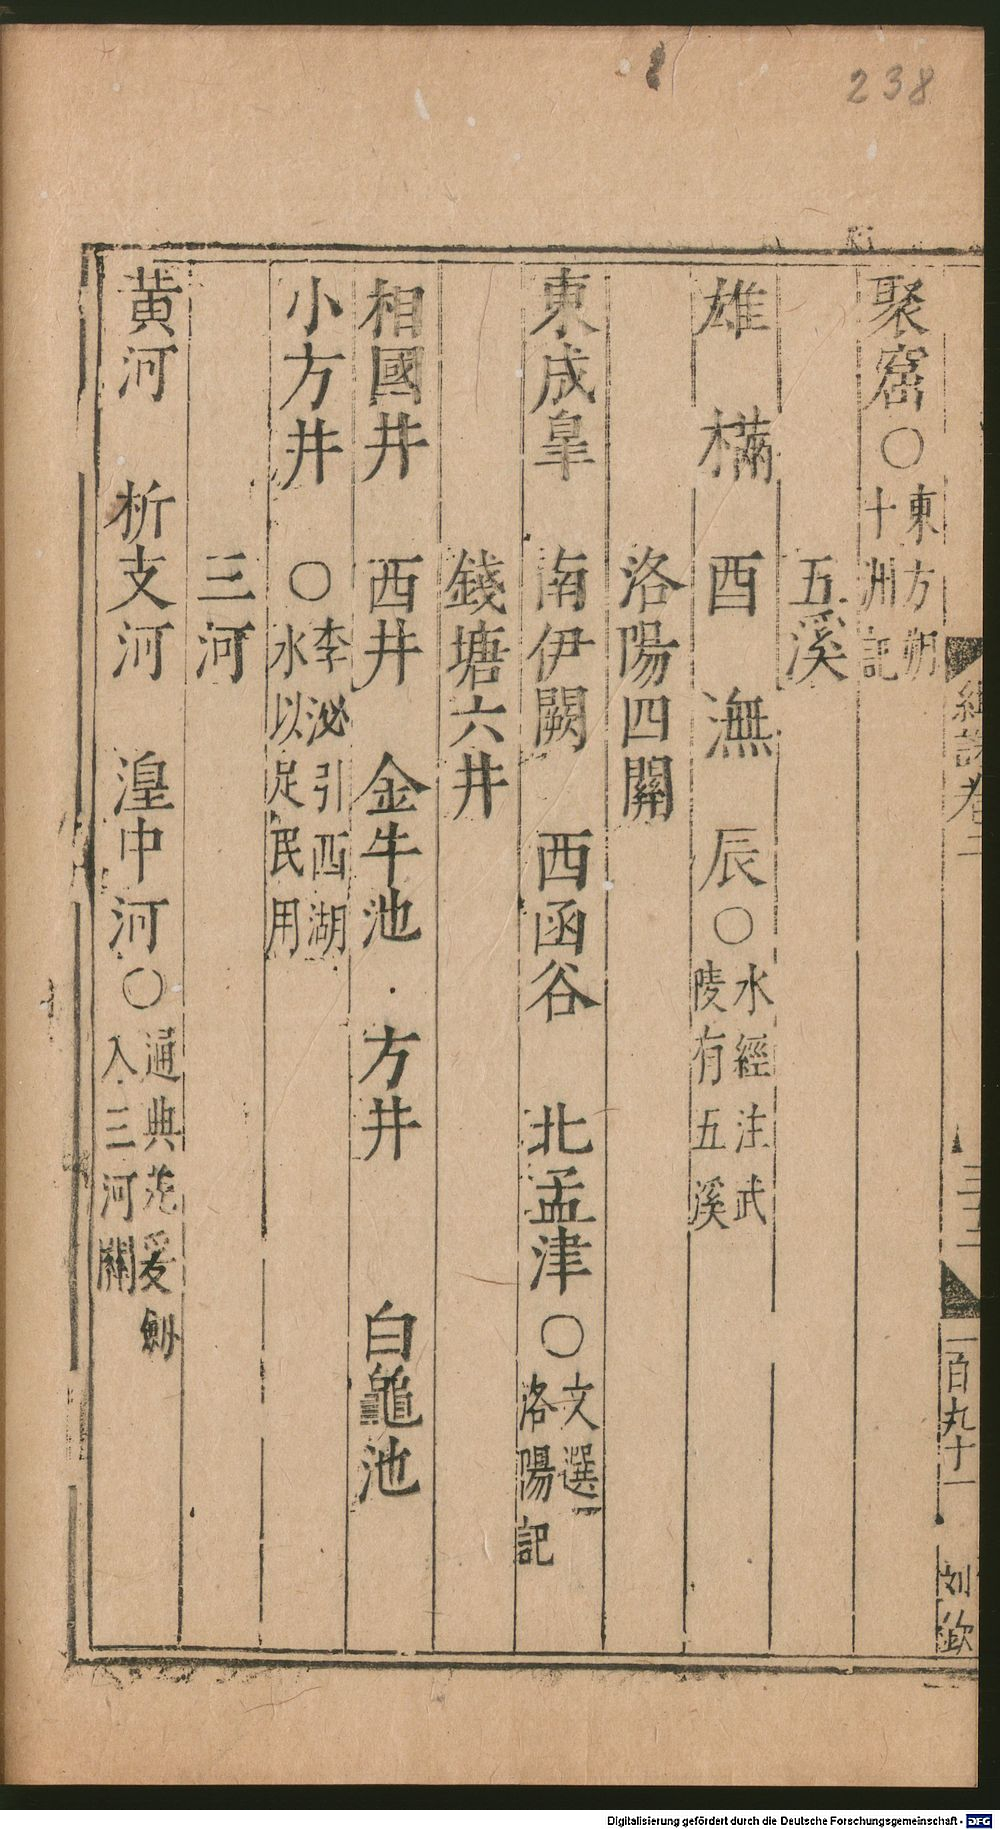 238
聚窟○東方朔十洲記
五溪
雄 樠 酉 潕 辰○水經注武陵有五溪
洛陽四關
東成皋 南伊闕 西函谷 北孟津○文選洛陽記
錢塘六井
相國井 西井 金牛池 方井 白龜池
小方井 ○李泌引西湖水以足民用
三河
黃河 析支河 湟中河○通典范爰劒入三河關
卷二
一百九十一
刘欽
Digitalisierung gefördert durch die Deutsche Forschungsgemeinschaft - DFG